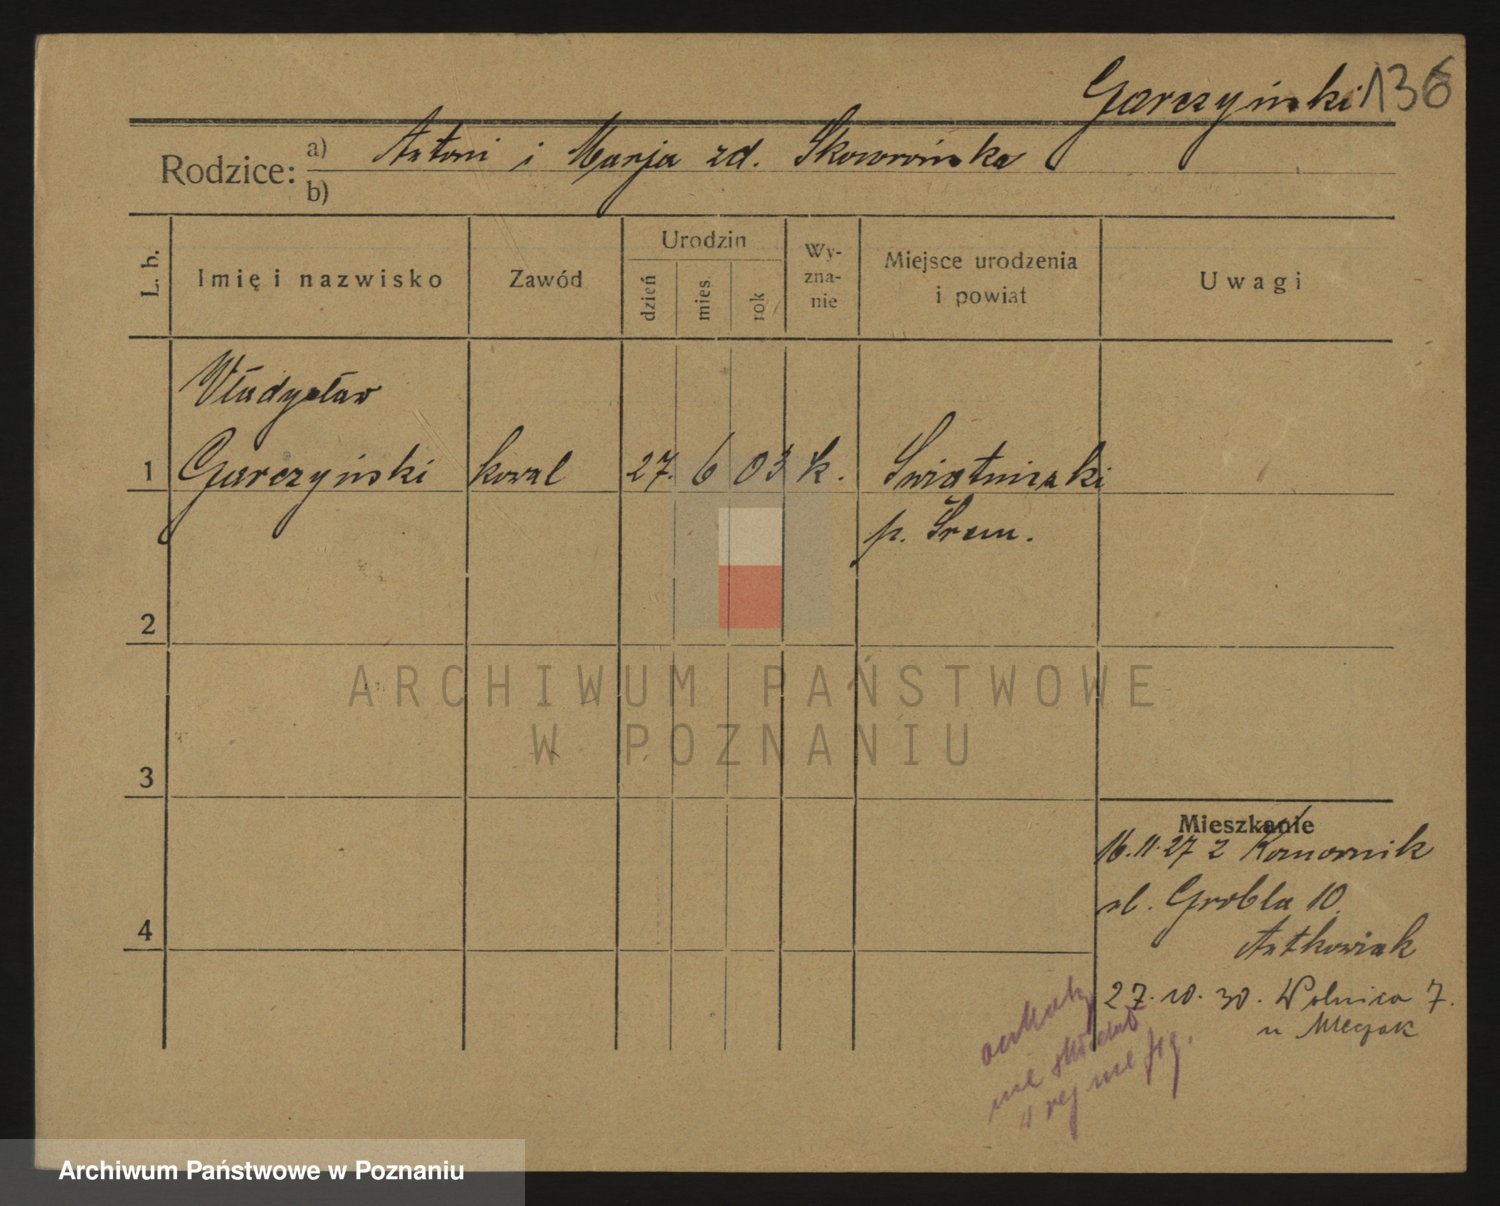 Garczyński 136
Rodzice: a) Antoni i Marja zd. Skowrońska
b)
L. b.
Imię i nazwisko
Zawód
Urodzin
dzień
mies.
rok
Wy-
zna-
nie
Miejsce urodzenia
i powiat
Uwagi
Władysław
1 Garczyński kowal 27. 6 03 k. Swiątniczki
p. Śrem.
2
ARCHIWUM PAŃSTWOWE
W POZNANIU
3
Mieszkanie
16.11.27 z Komornik
ul. Grobla 10
4
Antkowiak
27. 10. 30. Wolnica 7.
u
nie
4 rej nie fig.
Archiwum Państwowe w Poznaniu